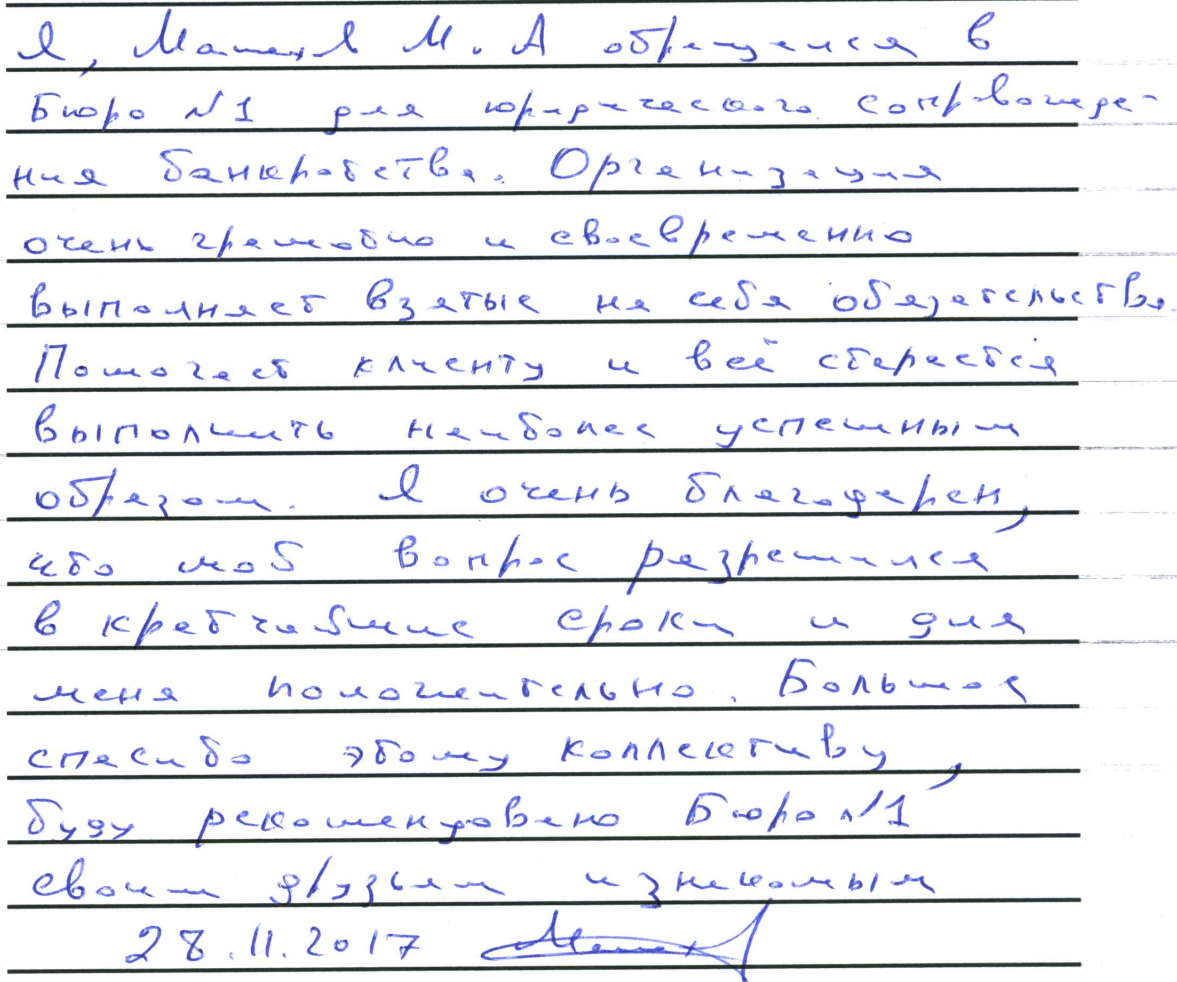 Я, М. А обращался в
Бюро №1 для юридического сопрвожде-
ния банкротства. Организация
очень грамотно и своевременно
выполняет взятые на себя обязательства.
Помогает клиенту и всё старается
выполнить наиболее успешным
образом. Я очень благодарен,
что мой вопрос разрешился
в кратчайшие сроки и для
меня положительно. Большое
спасибо этому коллективу,
буду Бюро №1
своим друзьям и знакомым
28.11.2017